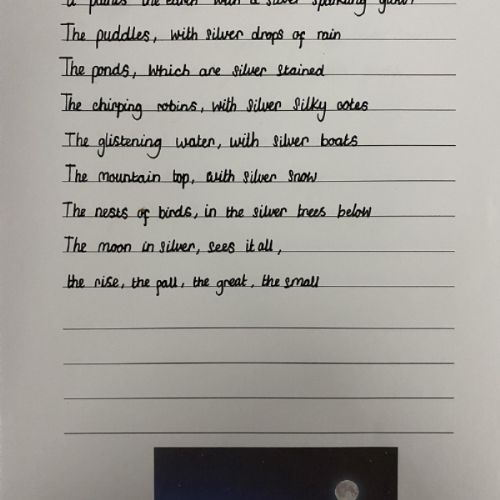 it paints the earth with a silver sparkling glow!
The puddles, with silver drops of rain
The ponds, which are silver stained
The chirping robins, with silver silky cotes
The glistening water, with silver boats
The mountain top, with silver snow
The nests of birds, in the silver trees below
The moon in silver, sees it all,
the rise, the fall, the great, the small